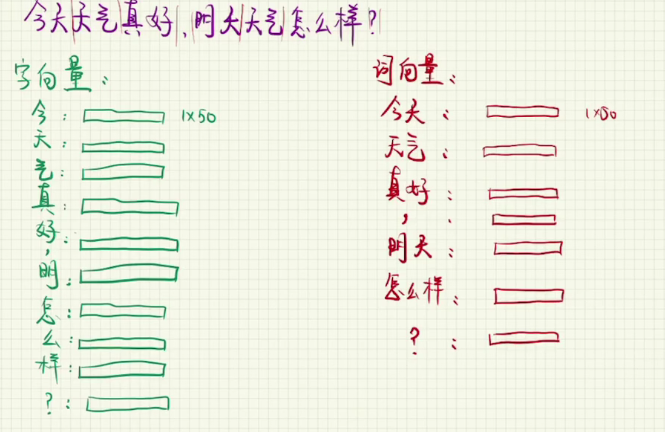 今天天气真好,明天天气怎么样?
字向量:
今: 1×50
天:
气:
真:
好:
,
明:
怎:
么:
样:
?:
词向量:
今天: 1×50
天气:
真好:
, :
明天:
怎么样:
? :